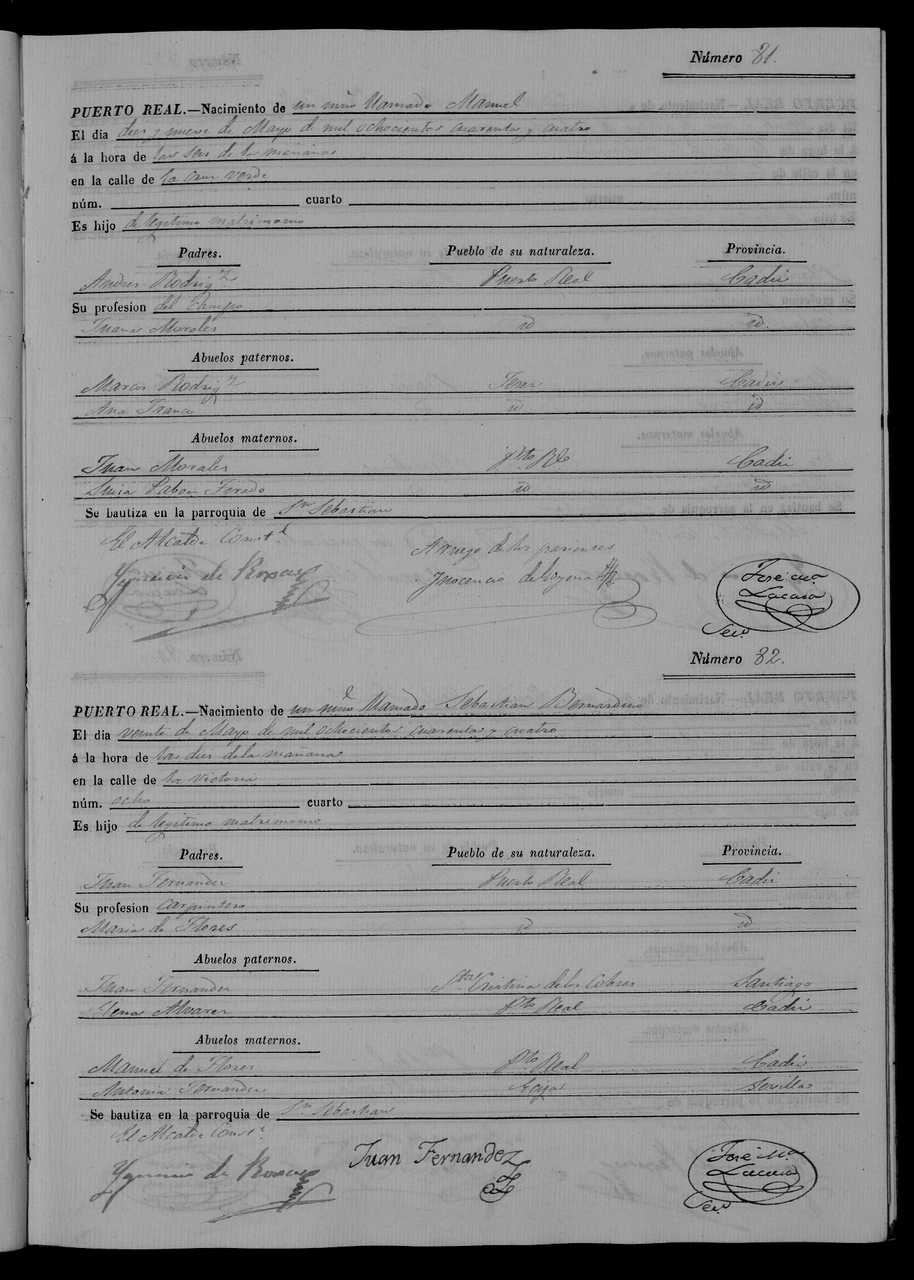 Número 81.
PUERTO REAL.—Nacimiento de un niño llamado Manuel
El dia diez y nueve de Mayo de mil ochocientos cuarenta y cuatro
á la hora de las seis de la mañana
en la calle de la Cruz verde
núm. cuarto
Es hijo de legitimo matrimonio
Padres. Pueblo de su naturaleza. Provincia.
Andres Rodrigz Puerto Real Cadiz
Su profesion del Campo
Juana Morales id id.
Abuelos paternos.
Marcos Rodrigz Jerez Cadiz
Ana Franco id id
Abuelos maternos.
Juan Morales Pto Rl Cadiz
Luisa Pabon id id
Se bautiza en la parroquia de Sn Sebastian
El Alcalde Constl
A ruego de los parientes
Inocencio
José Ma
Lacasa
Seco.
Número 82.
PUERTO REAL.—Nacimiento de un niño llamado Sebastian Bernardino
El dia veinte de Mayo de mil ochocientos cuarenta y cuatro
á la hora de las diez de la mañana
en la calle de la Victoria
núm. ocho cuarto
Es hijo de legitimo matrimonio
Padres. Pueblo de su naturaleza. Provincia.
Juan Fernandez Puerto Real Cadiz
Su profesion carpintero
Maria de Flores id id
Abuelos paternos.
Juan Fernandez Sta Cristina de los Cobres Santiago
Elena Alvarez Pto Real Cadiz
Abuelos maternos.
Manuel de Flores Pto Real Cadiz
Antonia Fernandez Sevilla
Se bautiza en la parroquia de Sn Sebastian
El Alcalde Constl.
Juan Fernandez
José Ma
Lacasa
Seco.